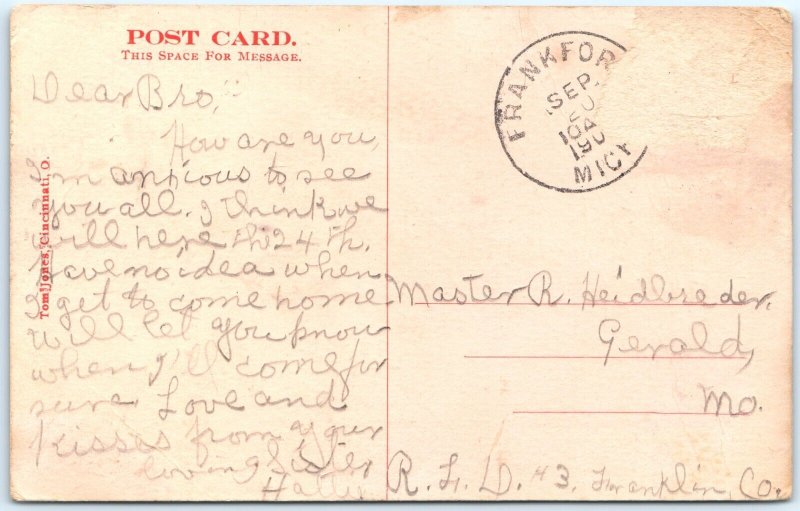 POST CARD.
THIS SPACE FOR MESSAGE.
Dear Bro,
How are you,
I'm anxious to see
you all. I think we
will here th 24 th.
Have no idea when
I get to come home
will let you know
when I'll come for
sure. Love and
Kisses from your
loving Sister
Hattie
Tom Jones, Cincinnati, O.
FRANKFOR
SEP.
10A
190
MICH
Master R. Heidbreder.
Gerald,
Mo.
R. F. D. #3. Franklin, Co.